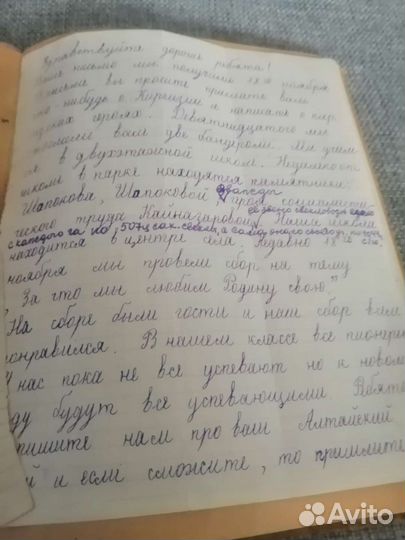 Здравствуйте дорогие ребята!
Ваше письмо мы получили 18го ноября
письма вы просите прислать вам
что-нибудь о Киргизии и написать о кир
гизских героях. Девятнадцатого мы
вам две бандероли. Мы учим
ся в двухэтажной школе. Недалеко от
школы в парке находятся памятники:
Шопокова, Шопоковой дважды героя социалисти
ческого труда Кайназаровой. Наша школа
с каждого га по 507ц сах. свеклы,
находится в центре села. Недавно 18го
ноября мы провели сбор на тему
„За что мы любим Родину свою"
На сборе были гости и наш сбор всем
понравился. В нашем классе все пионеры
У нас пока не все успевают но к новому
году будут все успевающими. Ребята
пишите нам про ваш Алтайский
й и если сможите, то пришлите
Avito